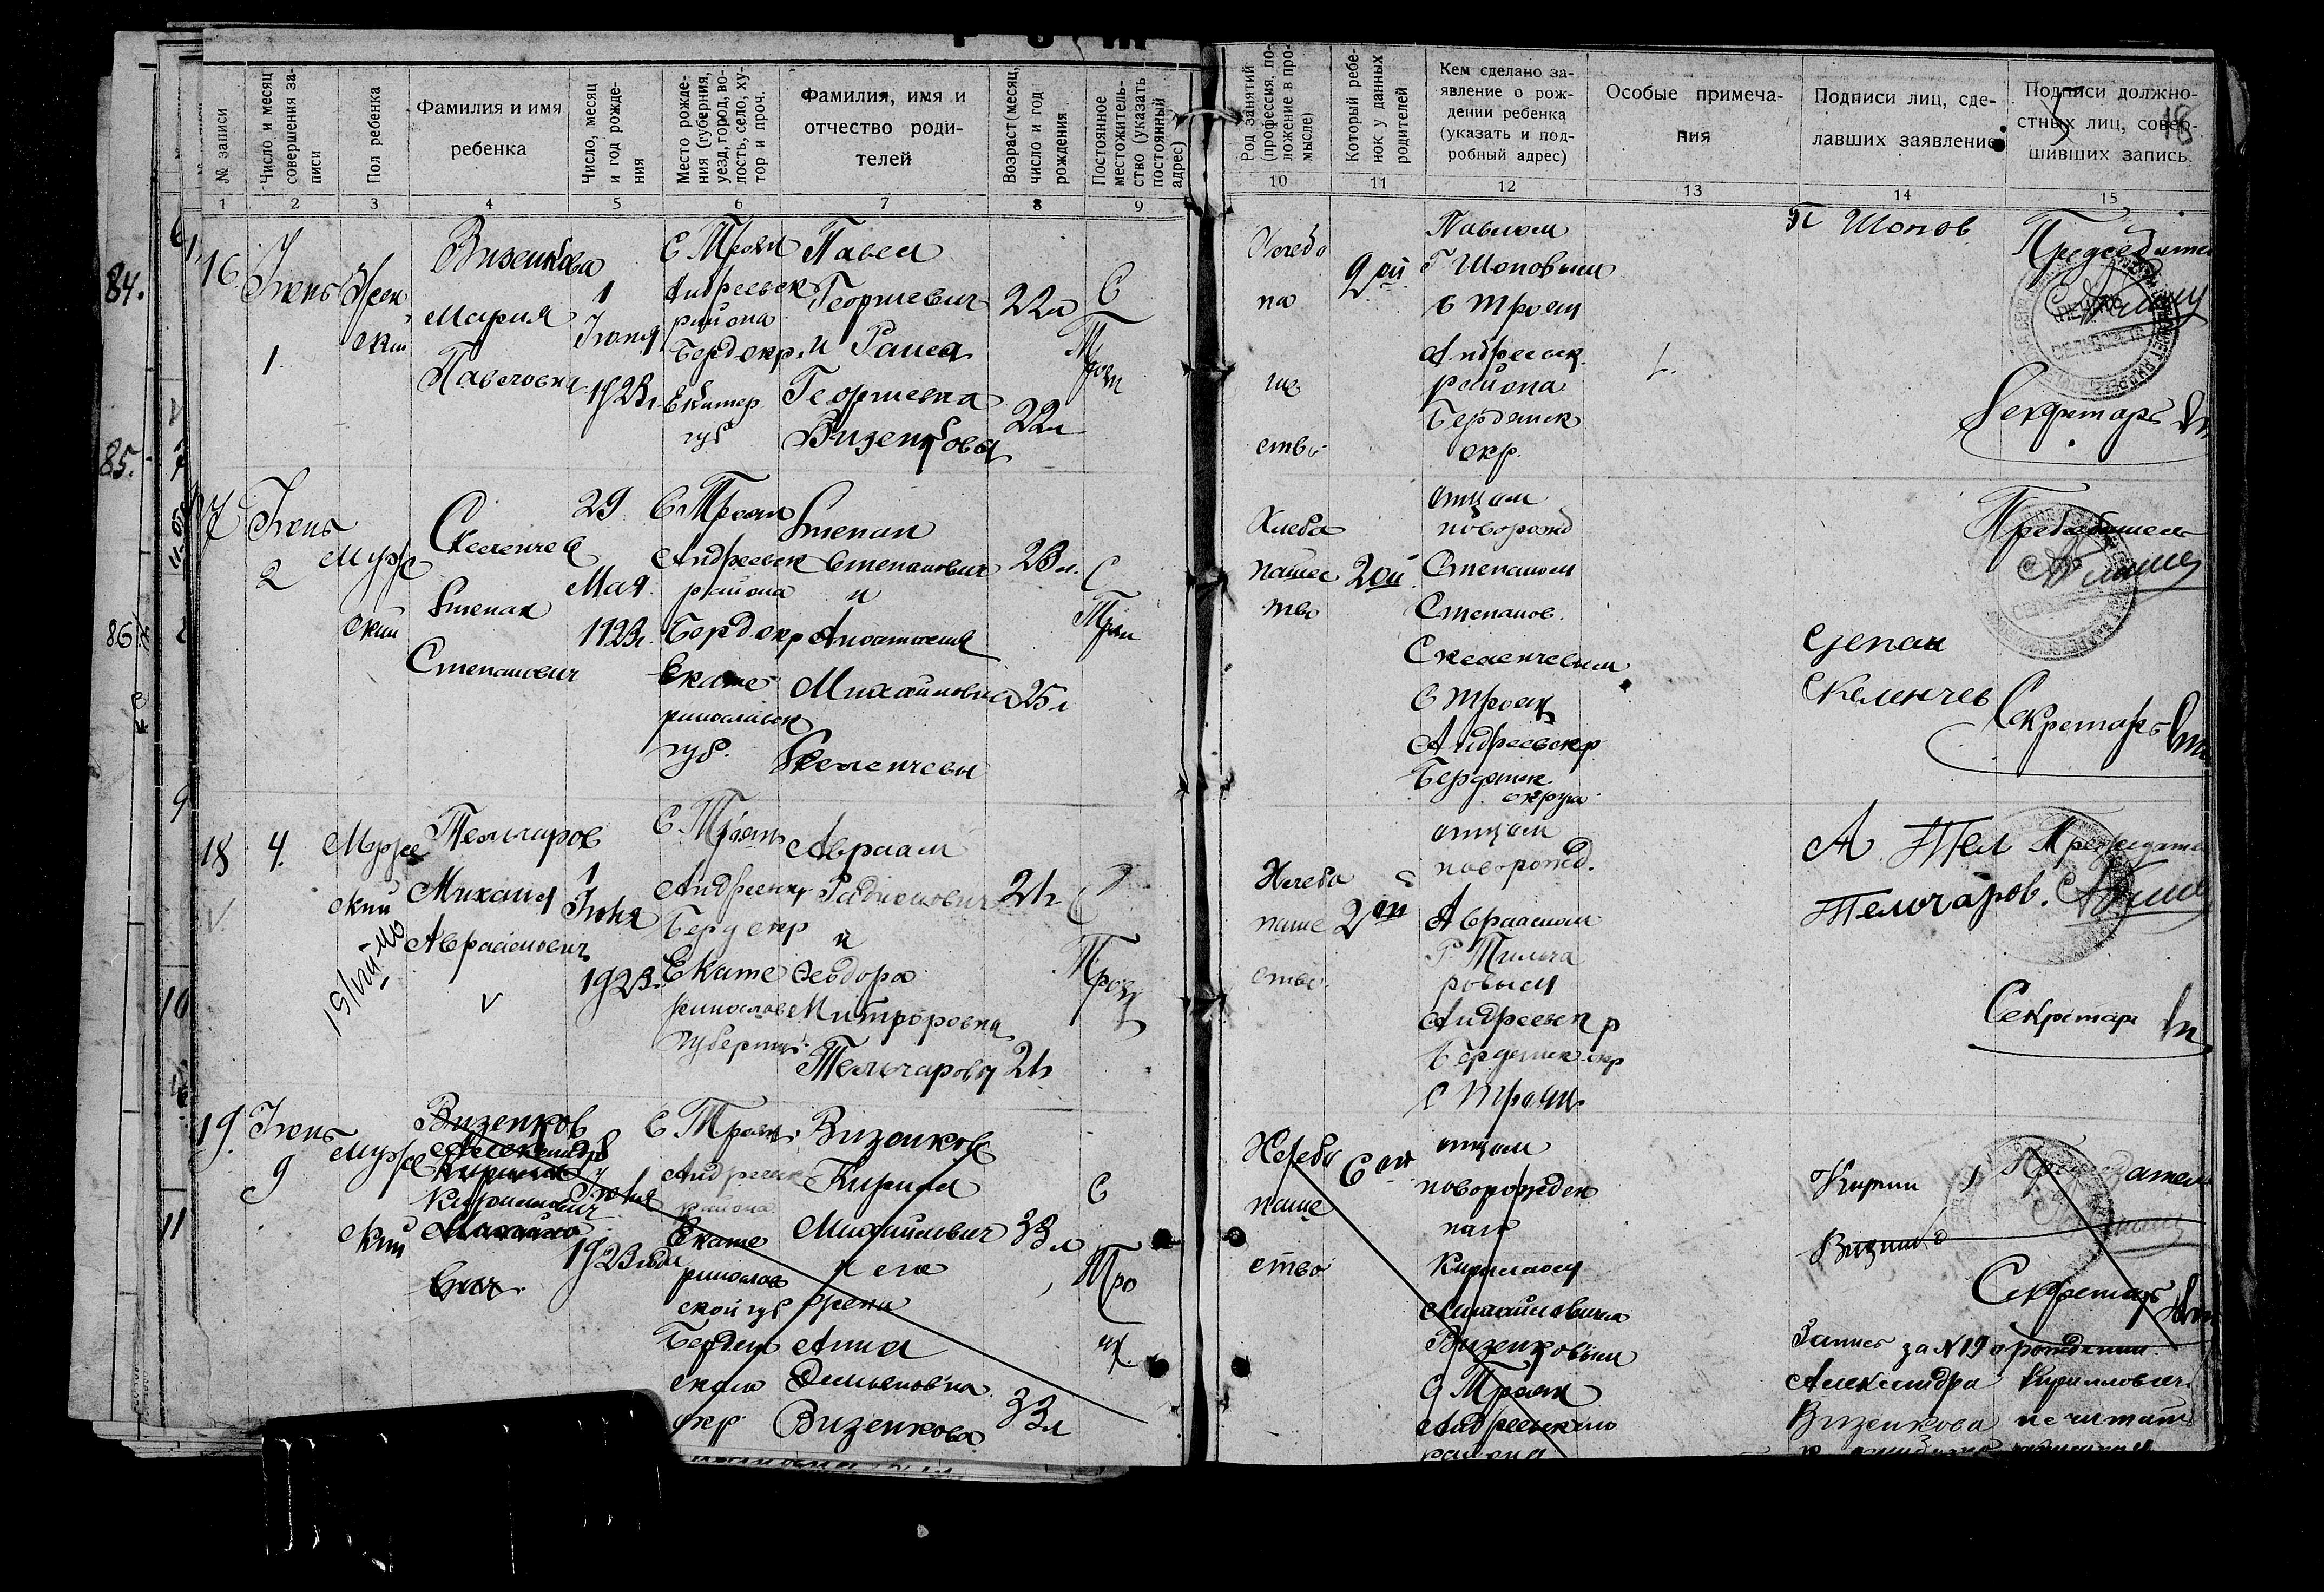 № записи
Число и месяц
совершения за-
писи
Пол ребенка
Фамилия и имя
ребенка
Число, месяц
и год рожде-
ния
Место рожде-
ния (губерния,
уезд, город, во-
лость, село, ху-
тор и проч.
Фамилия, имя и
отчество роди-
телей
Возраст (месяц,
число и год
рождения
Постоянное
местожитель-
ство (указать
постоянный
адрес)
Род занятий
(профессия, по-
ложение в про-
мысле)
Который ребе-
нок у данных
родителей
Кем сделано за-
явление о рож-
дении ребенка
(указать и под-
робный адрес)
Особые примеча-
ния
Подписи лиц, сде-
лавших заявление
Подписи должно-
стных лиц, совер-
шивших запись.
18
1 2 3 4 5 6 7 8 9 10 11 12 13 14 15
84.
85.
86
16
Июнь
1.
Жен
ский
Визенкова
Мария
Павловна
1
Июня
1923г.
С Троян
Андреевск
района
Бердокр.
Екатер
губ
Павел
Георгиевич
и
Георгиевна
Визенковы
22л
22л
С
Троян
Хлебо
па
ше
ство
2ой
Павлом
Г Шоповым
С Троян
Андреевск.
района
Бердянск
окр.
П Шопов.
Председател
Секретарь
17
Июнь
2
Мужс
ский
Скеленчев
Степан
Степанович
29
Мая.
1923г.
С Троян
Андреевск
района
Бердокр
Екате
ринославск
губ.
Степан
Степанович
и
Анастасия
Михайловна
Скеленчевы
26л.
25л
С
Троян
Хлебо
пашес
тво
2ой
отцом
новорожд
Степаном
Степанов.
Скеленчевым
С Троян
Андреевскр
Бердянск.
округа
Степан
Скеленчев
Председатель
Секретарь
18
4.
Мужс
ский
Тельчаров
Михаил
Авраамович
1
Июня
1923г.
С. Троян
Андреевск
Бердокр
Екате
ринослав
губернии
Авраам
Радионович
и
Феодора
Митрофовна
Тельчаровы
24
24
С
Троян
Хлебо
паше
ство.
2ой
отцом
новорожд.
Авраамом
Р. Тильча
ровым
Андреевск р
Бердянск окр
С Троян.
А. Тел
Тельчаров.
Председател
Секретарь
19.
Июнь
9
Мужс
ский
Визенков
Александр
Кириллович
Июня
1923года
С Троян.
Андреевск
района
Екате
ринослав
ской губ
Бердян
ского
окр
Визенков
Кирил
Михайлович
и его
жена
Анна
Емельяновна
Визенкова
33л
33л
С
Тро
ян.
Хлебо
паше
ство
6ой
отцом
новорожден
наго
Кирилом
Михайловичем
Визенковым
С Троян
Андреевского
района
Кирил
Председатель
Секретарь
Запись за N19 о рождении
Александра Кирилловича
Визенкова не читать